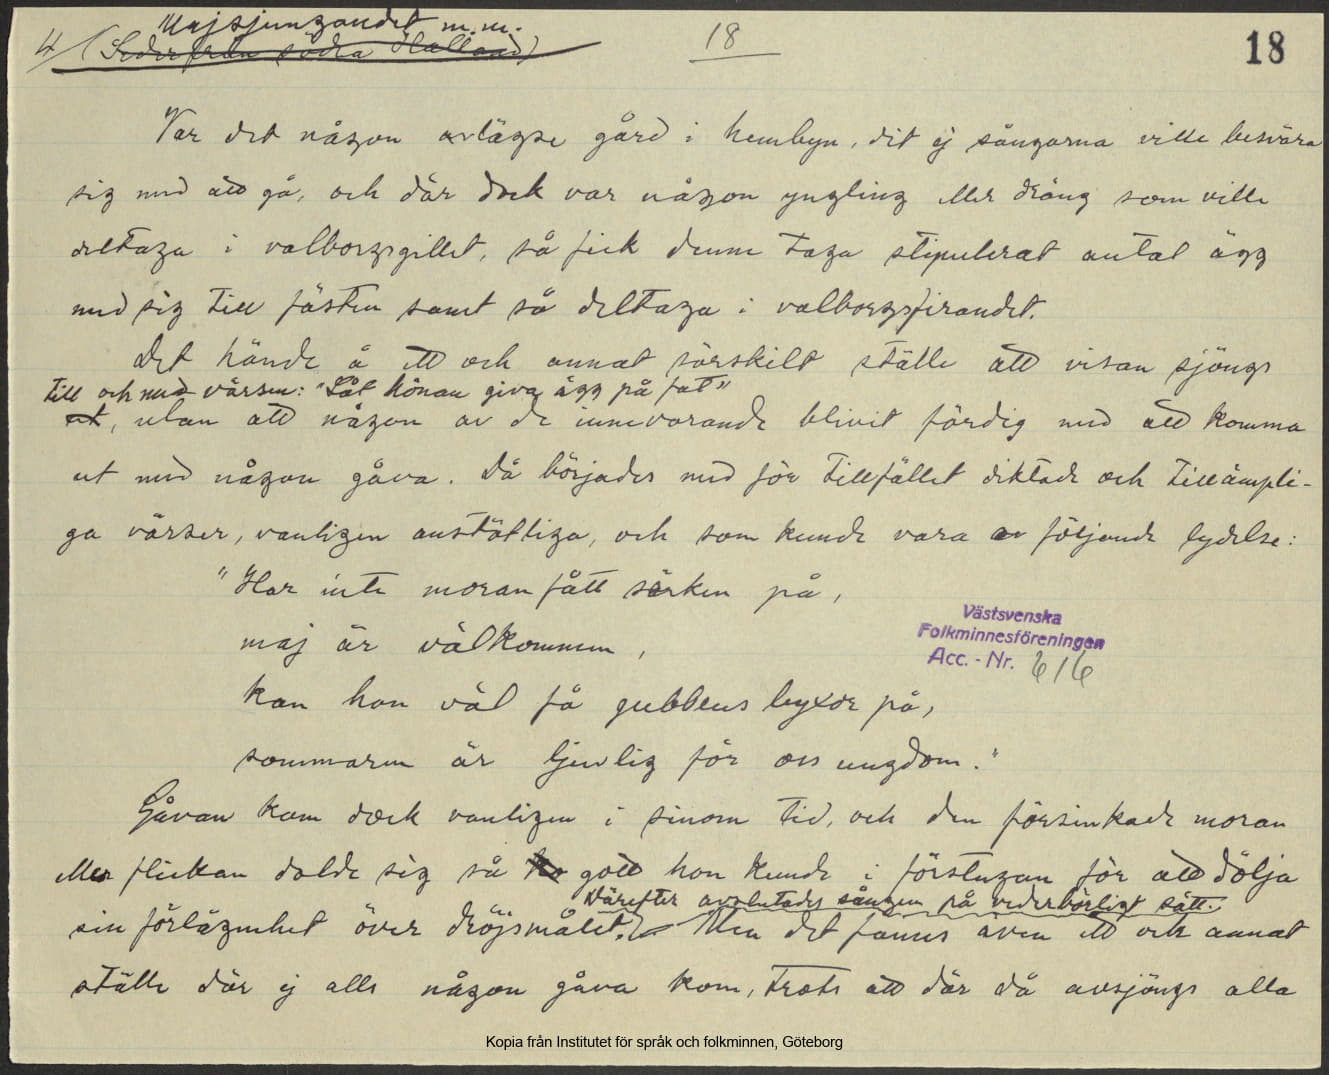 Majsjungandet m.m.
4/ (Seder från södra Halland)
18
18
Var det någon avlägse gård i hembyn, dit ej sångarna ville besvära
sig med att gå, och där dock var någon yngling eller dräng som ville
deltaga i valborgsgillet, så fick denne taga stipulerat antal ägg
med sig till fästen samt så deltaga i valborgsfirandet.
Det hände å ett och annat särskilt ställe att visan sjöngs
till och med värsen: "Låt hönan giva ägg på fat"
ut, utan att någon av de innevarande blivit färdig med att komma
ut med någon gåva. Då börjades med för tillfället diktade och tillämpli-
ga värser, vanligen anstötliga, och som kunde vara av följande lydelse:
"Har inte moran fått särken på,
maj är välkommen,
kan hon väl få gubbens byxor på,
sommaren är ljuvlig för oss ungdom."
Västsvenska
Folkminnesföreningen
Acc. - Nr. 616
Gåvan kom dock vanligen i sinom tid, och den försinkade moran
eller flickan dolde sig så gott hon kunde i förstugan för att dölja
Därefter avslutades sången på vederbörligt sätt.
sin förlägenhet över dröjsmålet. Men det fanns även ett och annat
ställe där ej alls någon gåva kom, trots att där då avsjöngs alla
Kopia från Institutet för språk och folkminnen, Göteborg